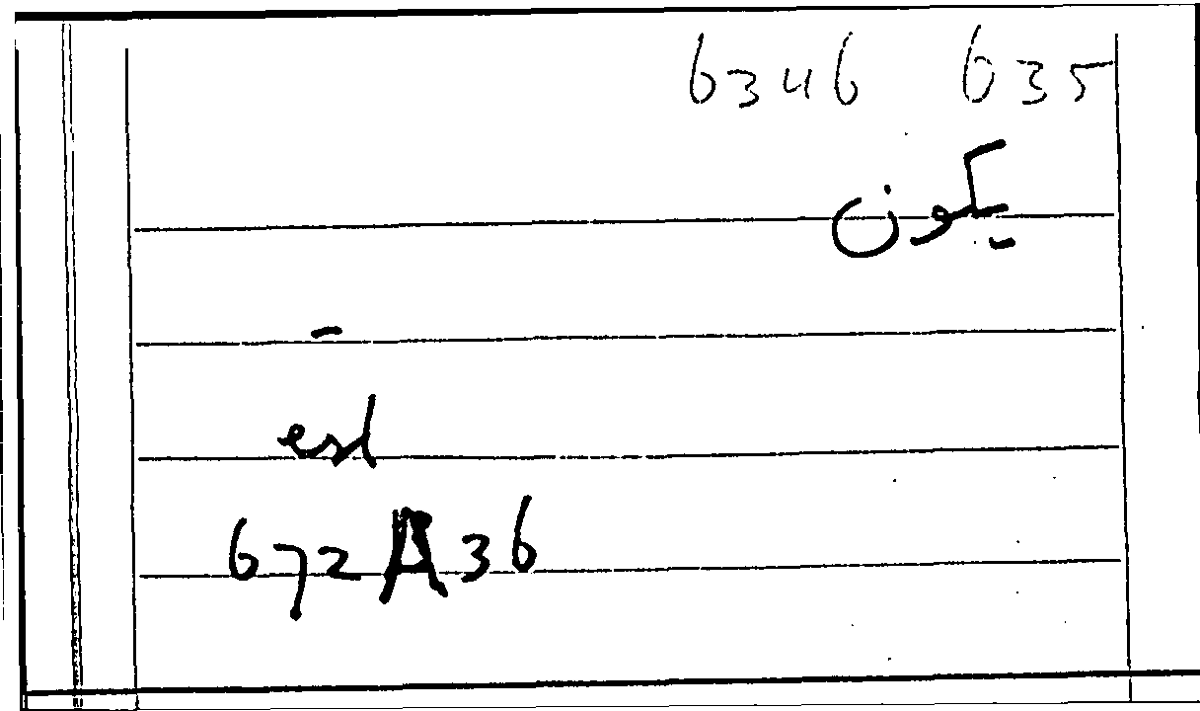 6346 635
يكون
-
esl
672A36